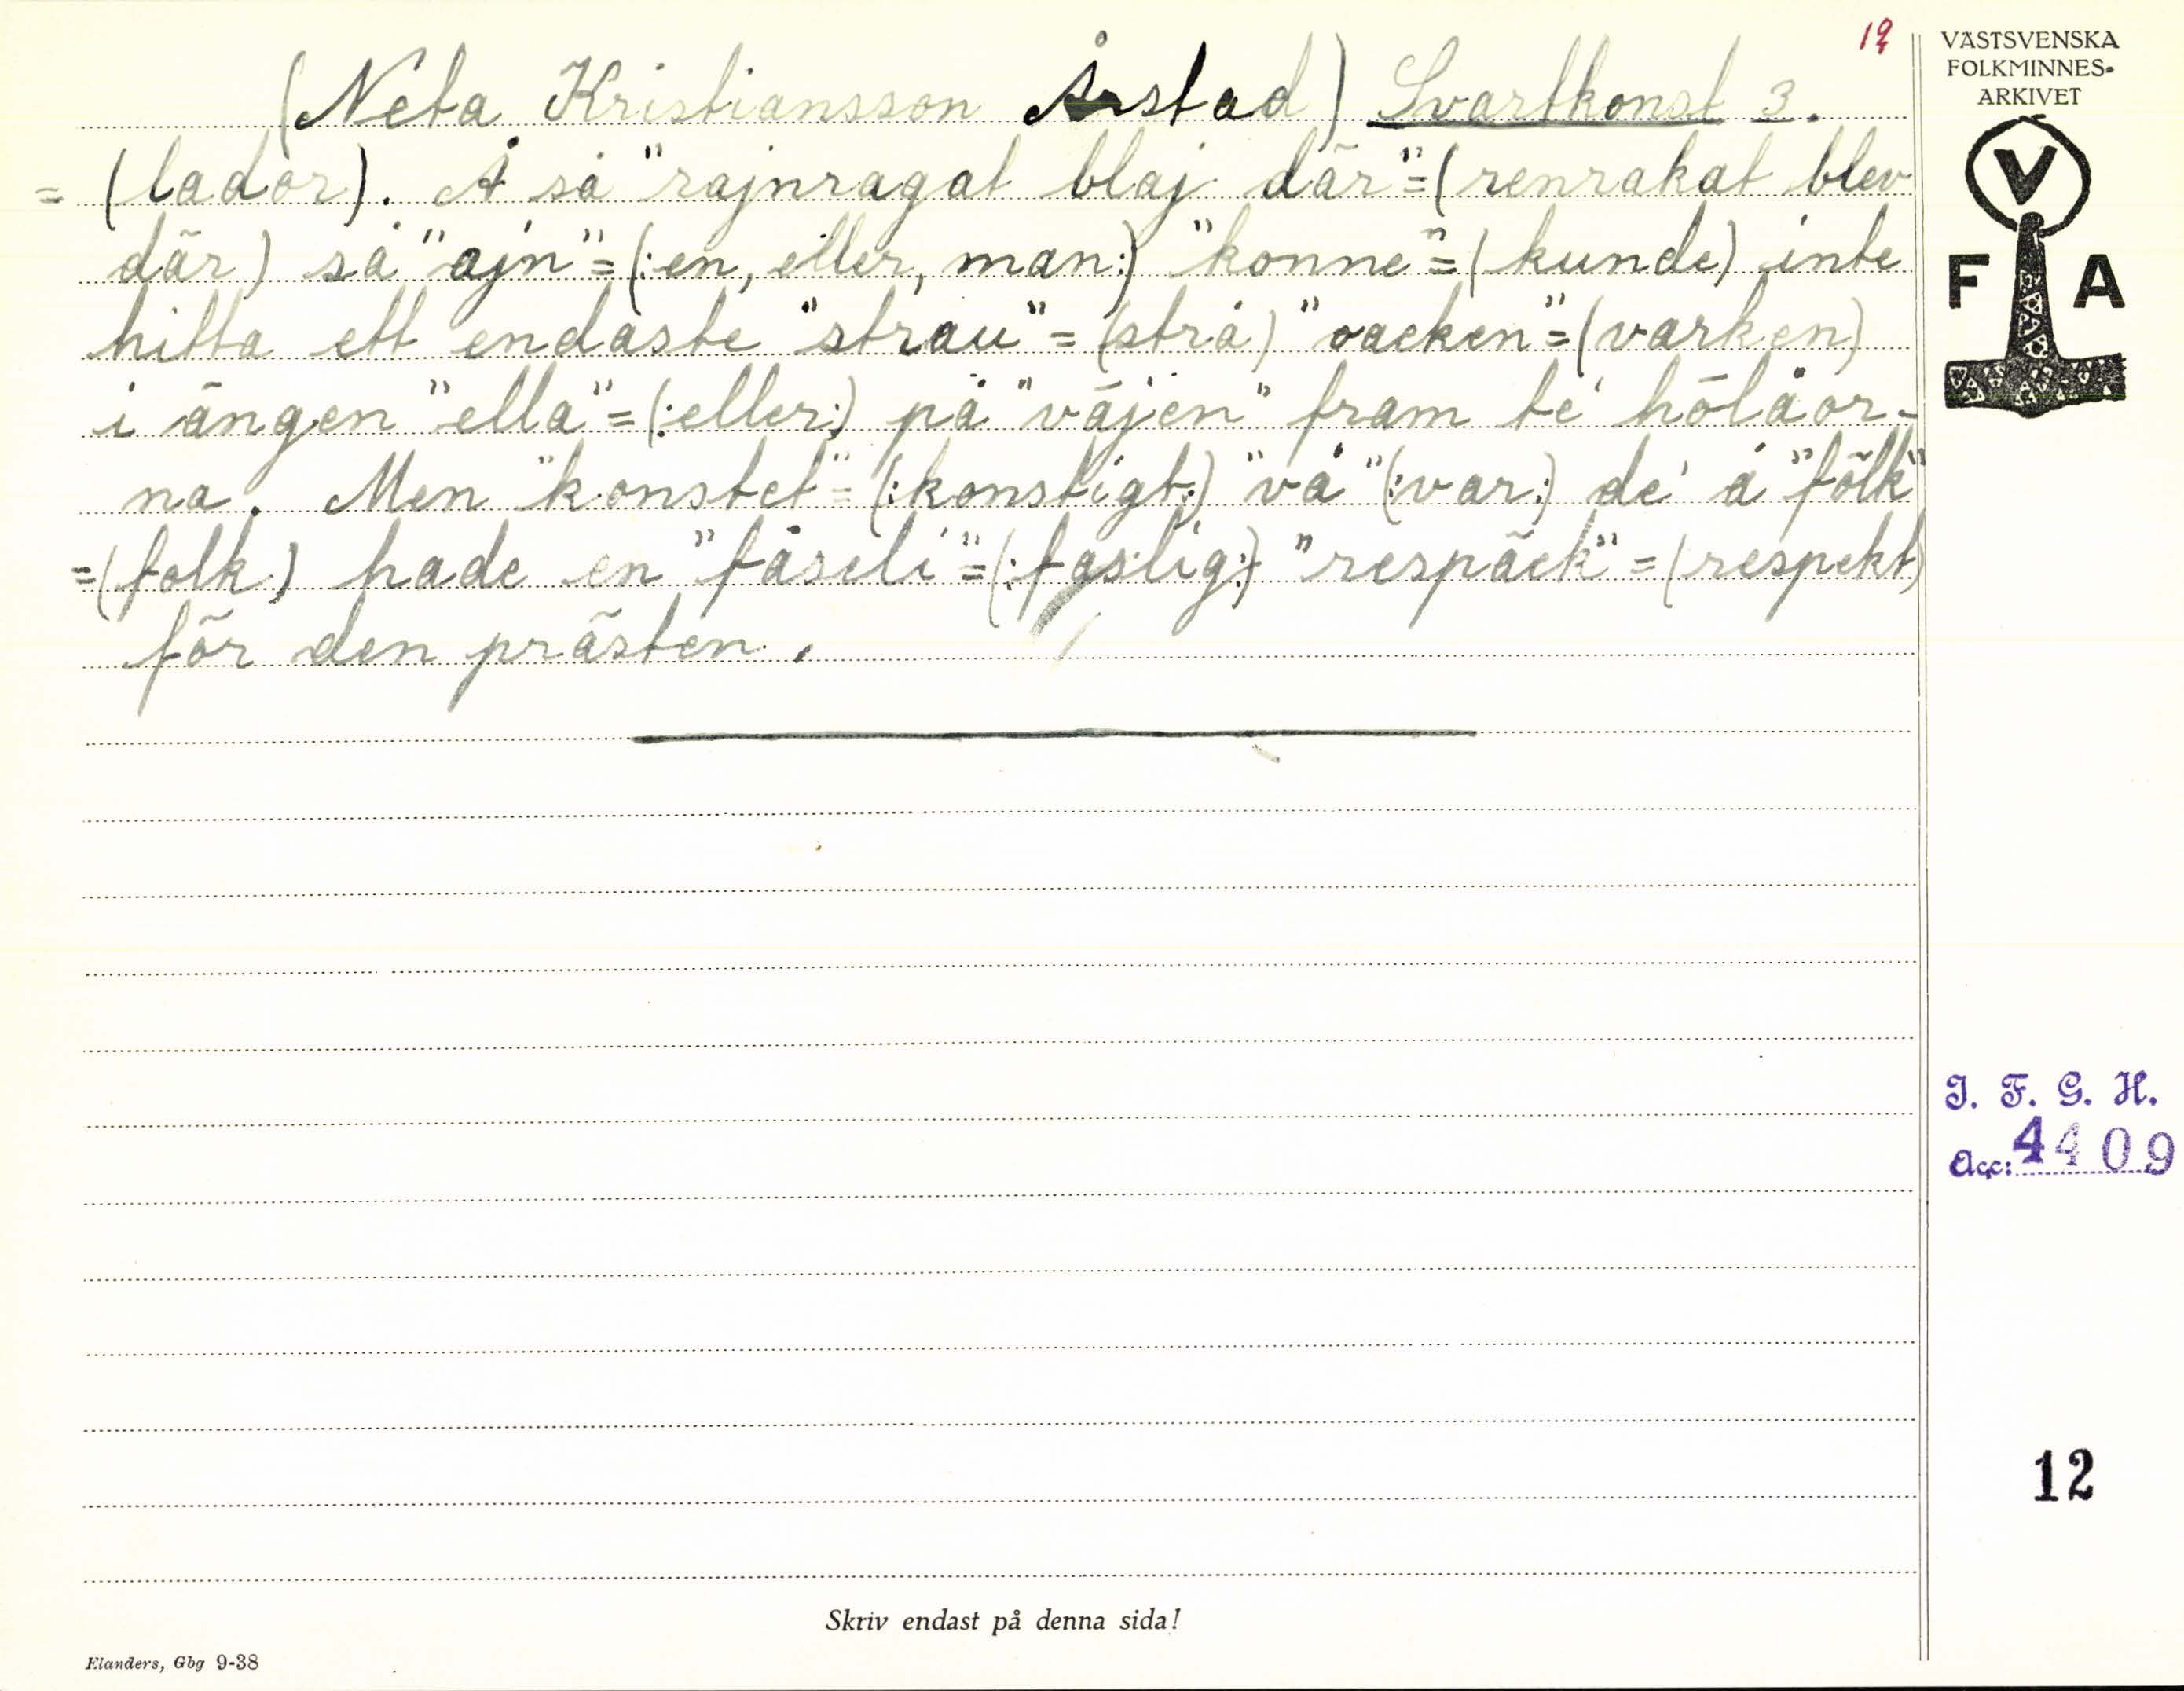 12
(Neta Kristiansson Årstad) Svartkonst 3.
= (lador). Å så "rajnragat blaj där" = (renrakat blev
där) så "ajn" = (:en, eller, man:) "konne" = (kunde) inte
hitta ett endaste "strau" = (strå) "vacken" = (varken)
i ängen "ella" = (:eller:) på "väjen" fram te' hölåor-
na. Men "konstet" = (:konstigt:) "vå" (:var:) de' å "fölk"
= (folk) hade en "fåseli" = (:faslig:) "respäck" = (respekt)
för den prästen.
VÄSTSVENSKA
FOLKMINNES-
ARKIVET
V
F A
I. F. G. H.
Acc: 4409
12
Skriv endast på denna sida!
Elanders, Gbg 9-38